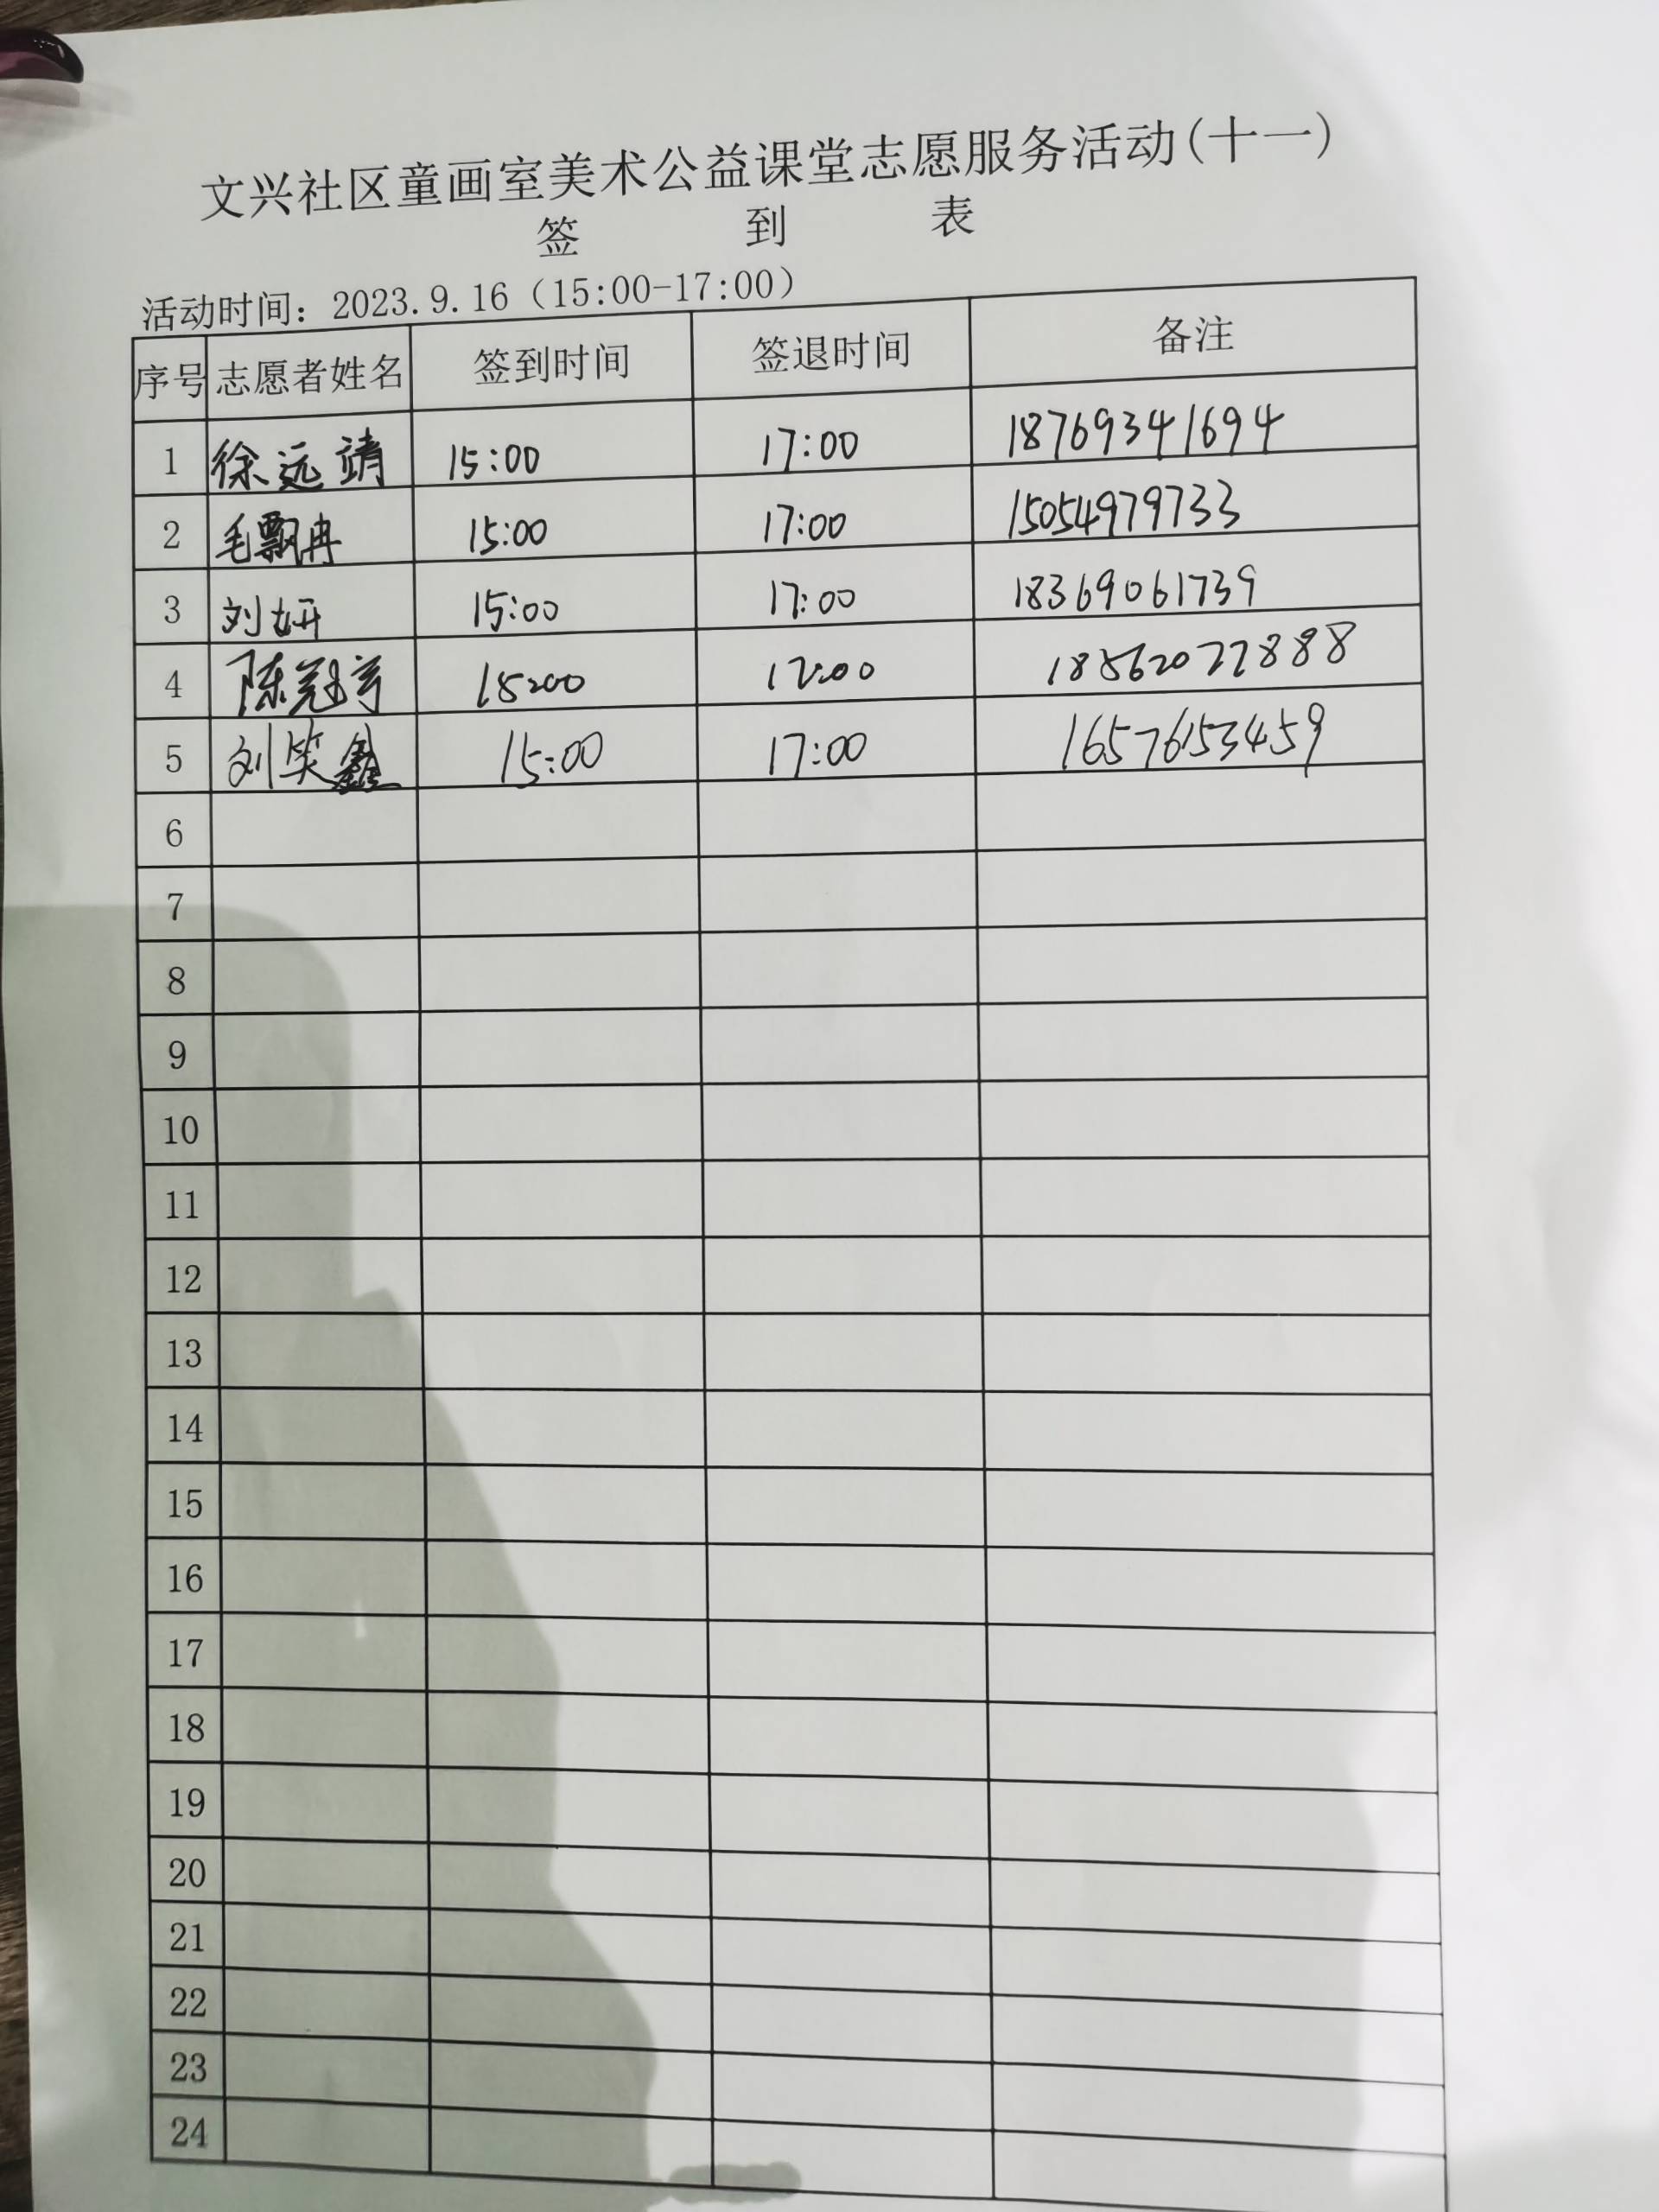 文兴社区童画室美术公益课堂志愿服务活动(十一)
签 到 表
活动时间：2023.9.16（15:00-17:00）
序号 志愿者姓名 签到时间 签退时间 备注
1 徐远靖 15:00 17:00 18769341694
2 毛飘冉 15:00 17:00 15054979733
3 刘妍 15:00 17:00 18369061739
4 陈冠亨 15:00 17:00 18562077888
5 刘笑鑫 15:00 17:00 16576153459
6
7
8
9
10
11
12
13
14
15
16
17
18
19
20
21
22
23
24